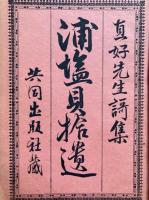 真好先生詩集
浦塩貝拾遺
共同出版社蔵